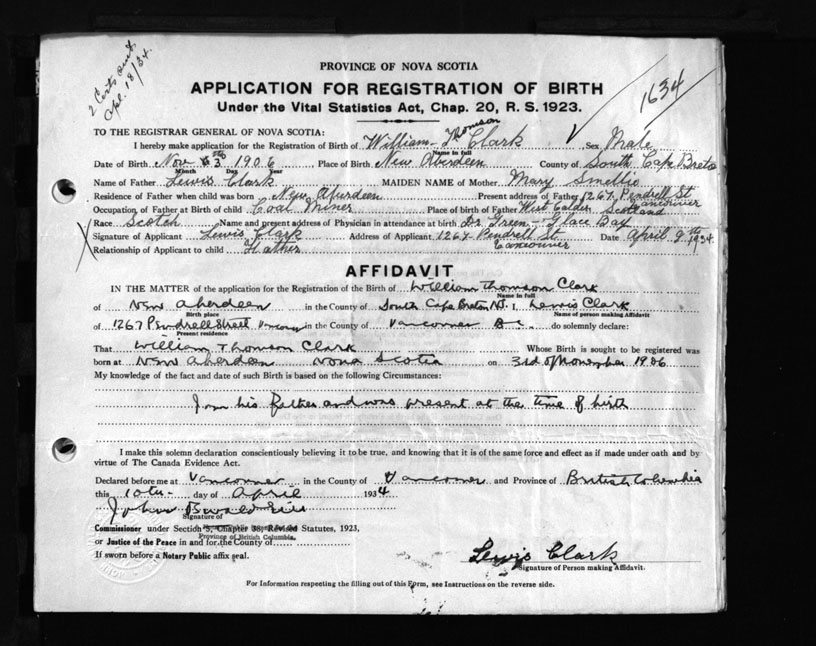 2 Certs sent
Apl. 18/34.
1634
PROVINCE OF NOVA SCOTIA
APPLICATION FOR REGISTRATION OF BIRTH
Under the Vital Statistics Act, Chap. 20, R. S. 1923.
TO THE REGISTRAR GENERAL OF NOVA SCOTIA:
I hereby make application for the Registration of Birth of William Thomson Clark Sex Male
Name in full
Date of Birth Nov 3 1906 Place of Birth New Aberdeen County of South Cape Breton
Month Day Year
Name of Father Lewis Clark MAIDEN NAME of Mother Mary Smellie
Residence of Father when child was born New Aberdeen Present address of Father 1267 Pendrell St Vancouver
Occupation of Father at Birth of child Coal Miner Place of birth of Father West Calder Scotland
Race Scotch Name and present address of Physician in attendance at birth Dr Green - Glace Bay
Signature of Applicant Lewis Clark Address of Applicant 1267 Pendrell St Vancouver Date April 9th 1934
Relationship of Applicant to child Father
AFFIDAVIT
IN THE MATTER of the application for the Registration of the Birth of William Thomson Clark
Name in full
of New Aberdeen in the County of South Cape Breton NS I, Lewis Clark
Birth place Name of person making Affidavit
of 1267 Pendrell Street in the County of Vancouver BC do solemnly declare:
Present residence
That William Thomson Clark Whose Birth is sought to be registered was
born at New Aberdeen Nova Scotia on 3rd of November 1906
My knowledge of the fact and date of such Birth is based on the following Circumstances:
I am his father and was present at the time of birth
I make this solemn declaration conscientiously believing it to be true, and knowing that it is of the same force and effect as if made under oath and by
virtue of The Canada Evidence Act.
Declared before me at Vancouver in the County of Vancouver and Province of British Columbia
this 10th day of April 1934
John
Signature of
Commissioner under Section 3, Chapter 38, Revised Statutes, 1923,
Province of British Columbia.
or Justice of the Peace in and for the County of
If sworn before a Notary Public affix seal.
Lewis Clark
Signature of Person making Affidavit.
For Information respecting the filling out of this Form, see Instructions on the reverse side.